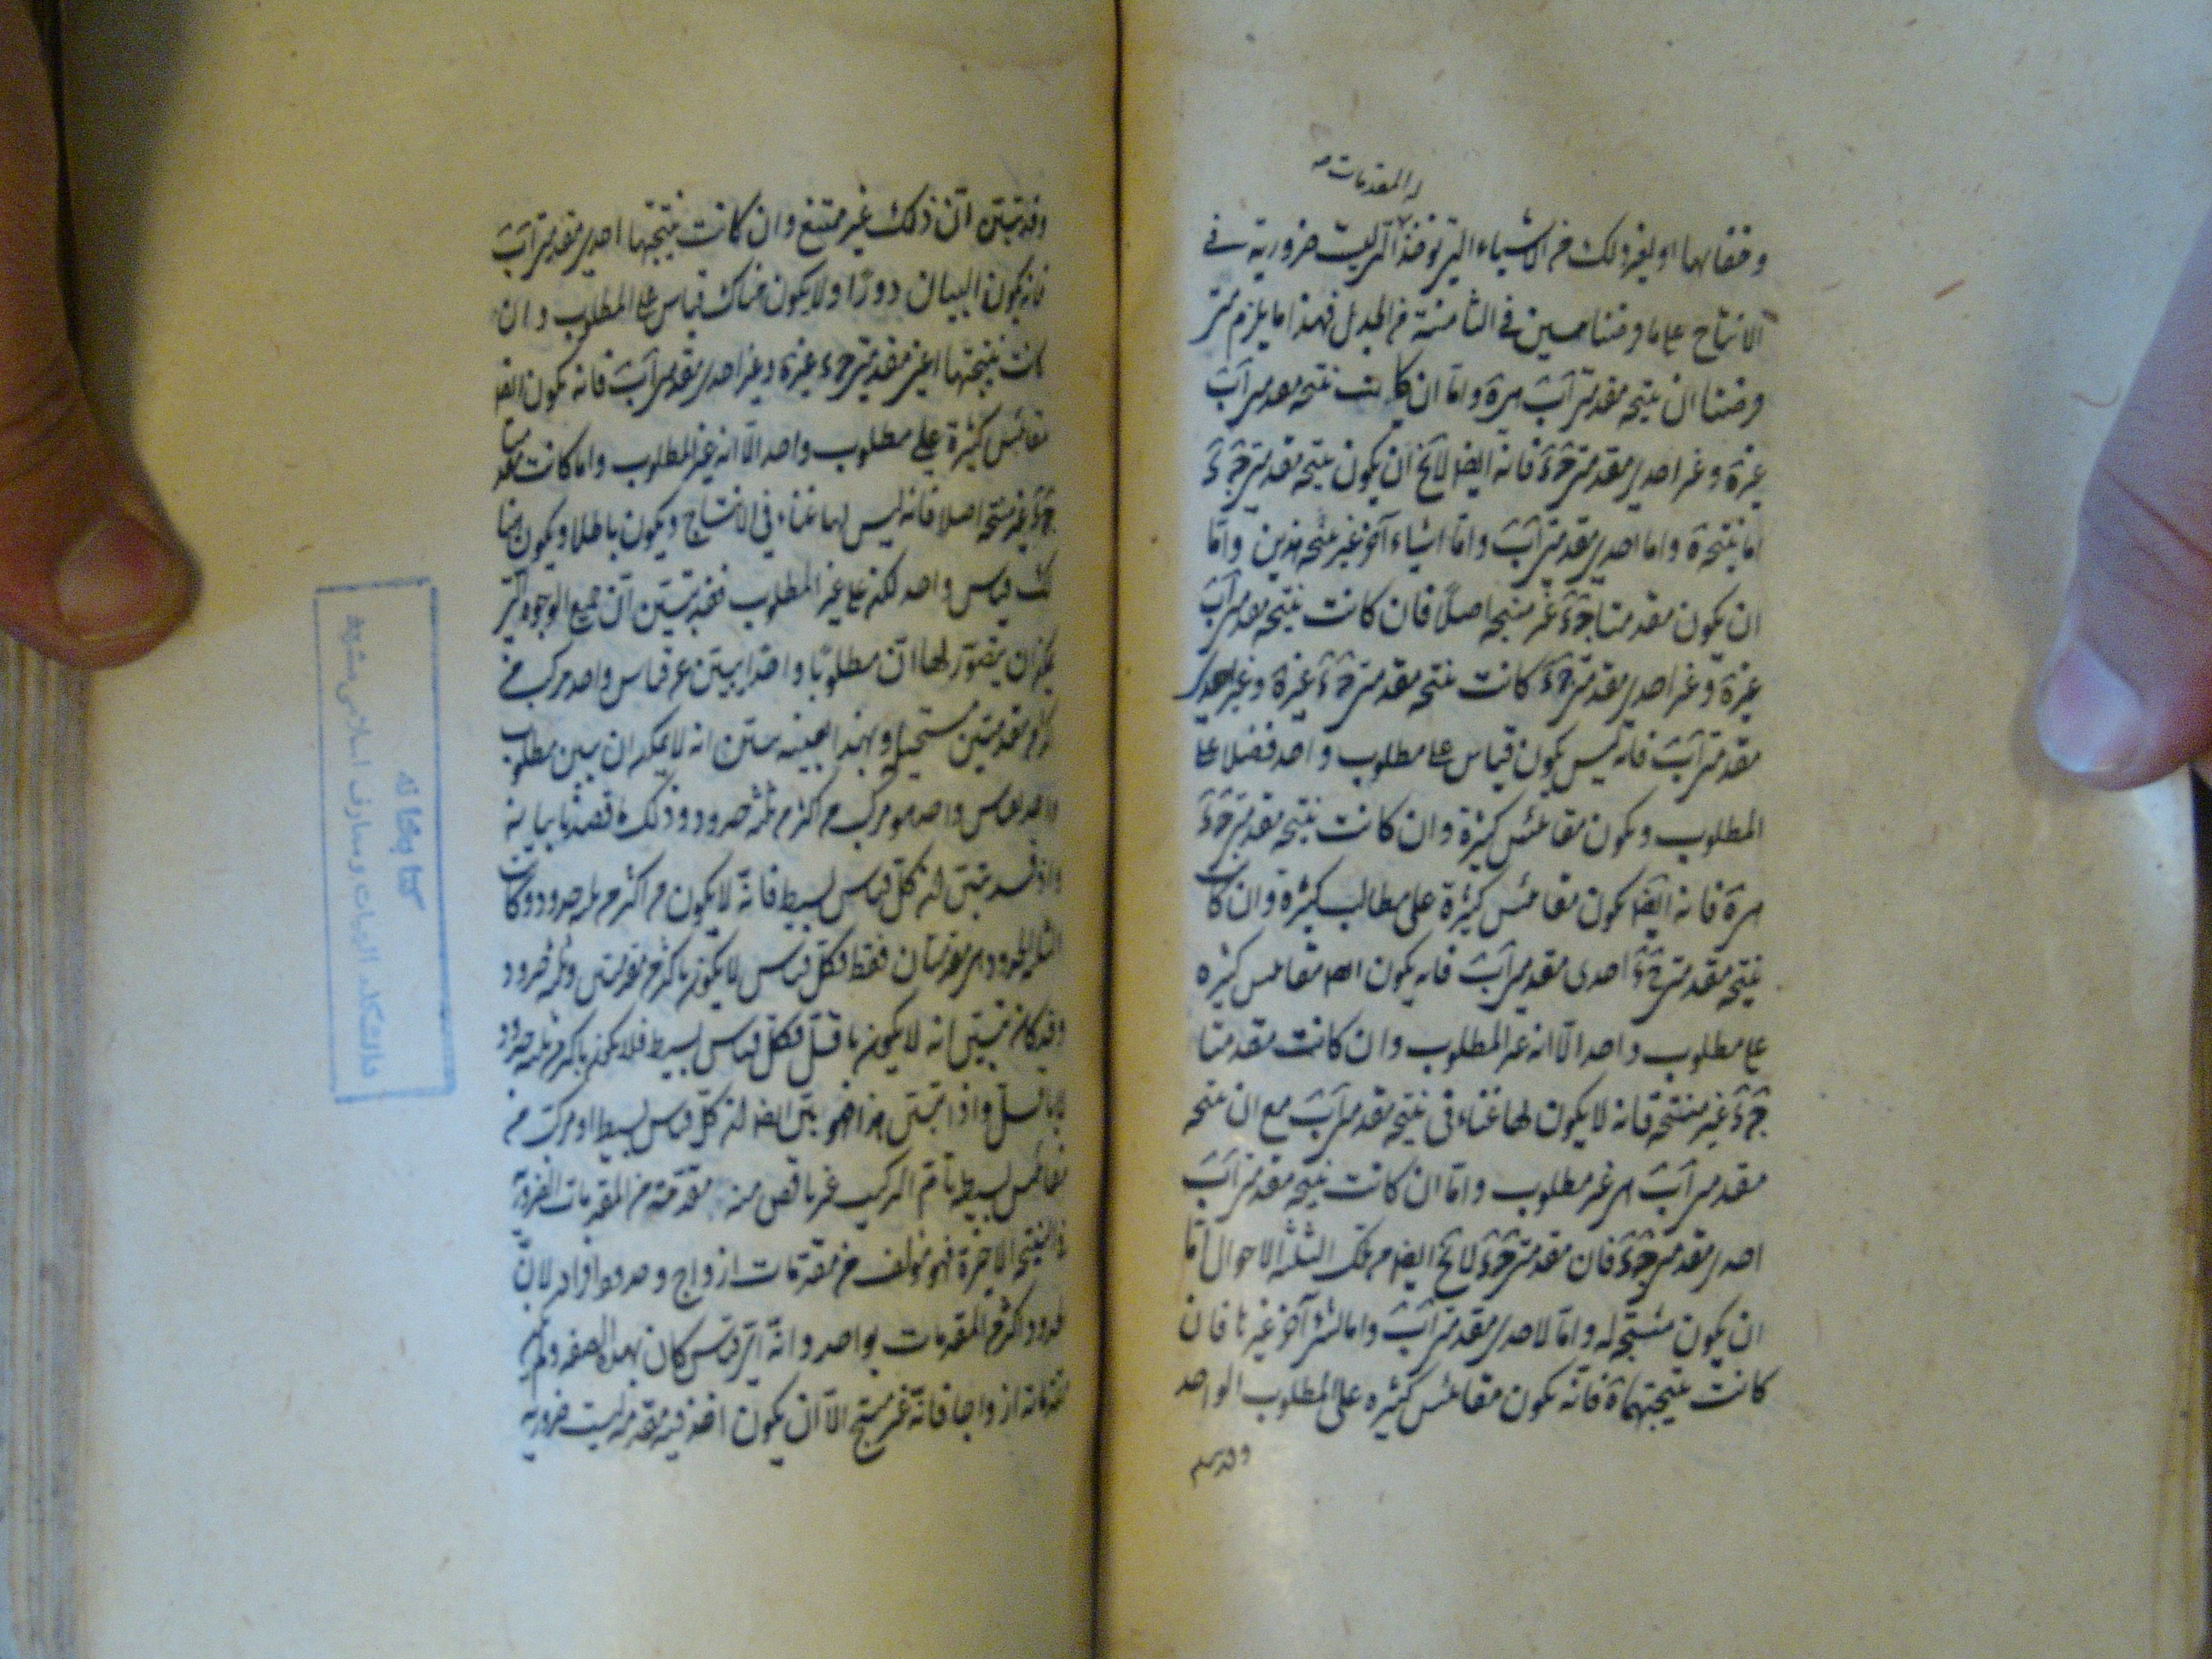 المقدمات
وخفائها او لغير ذلك من الاشياء التى توخذ التى ليست ضرورية فى
الانتاج على ما وصفنا حسين فى الثامنة من الجدل فهذا ما يلزم متى
فرضنا ان نتيجة مقدمتى آب مرة واما ان كانت نتيجة مقدمتى آب
غيرة وغير احدى مقدمتى جَءَ فانه ايضا لا يخ ان يكون نتيجة مقدمتى جَءَ
اما نتيجة ة واما احدى مقدمتى آب واما اشياء آخر غير نتيجة هذين واما
ان يكون مقدمتا جَءَ غير منتجة اصلًا فان كانت نتيجة مقدمتى آب
غيرة وغير احدى مقدمتى جَءَ كانت نتيجة مقدمتى جَءَ غيرة وغير احدى
مقدمتى آب فانه ليس يكون قياس على مطلوب واحد فضلا على
المطلوب ويكون مقائيس كثيرة وان كانت نتيجة مقدمتى جَءَ
مرة فانه ايضا يكون مقائيس كثيرة على مطالب كثيرة وان كانت
نتيجة مقدمتى جَءَ احدى مقدمتى آب فانه يكون ايضا مقائيس كثيره
على مطلوب واحد الّا انه غير المطلوب وان كانت مقدمتا
جَءَ غير منتجة فانه لا يكون لها غناء فى نتيجة مقدمتى آب مع ان نتيجة
مقدمتى آب هى غير مطلوب واما ان كانت نتيجة مقدمتى آب
احدى مقدمتى جَءَ فان مقدمتى جَءَ لا يخ ايضا من تلك الثلثة الاحوال اما
ان يكون منتجة له واما لاحدى مقدمتى آب واما لشئ آخر غيرها فان
كانت نتيجتهما ة فانّه يكون مقائيس كثيره على المطلوب الواحد
وقد تبين
وقد تبيّن انّ ذلك غير ممتنع وان كانت نتيجتها احدى مقدمتى آب
فانه يكون البيان دورًا ولا يكون هناك قياس على المطلوب وان
كانت نتيجتها اعنى مقدمتى جَءَ غيرة وغير احدى مقدمتى آب فانه يكون ايضا
مقائيس كثيرة على مطلوب واحد الّا انه غير المطلوب واما كانت مقدمتا
جَءَ غير منتجة اصلا فانه ليس لها غناء فى الانتاج ويكون باطلا ويكون هنا
لك قياس واحد لكنه على غير المطلوب فقد تبيّن انّ جميع الوجوه التى
يمكن ان يتصوّر لها انّ مطلوبًا واحدًا يبيّن عن قياس واحد مركب من
اكثر من مقدمتين مستحيل وبهذا بعينه يبين انه لا يمكن ان يبين مطلوب
واحد بقياس واحد هو مركب من اكثر من ثلثة حدود وذلك ما قصدنا بيانه
واذ قد تبيّن ان كلّ قياس بسيط فانه لا يكون من اكثر من ثلثة حدود وكانت
الثلثة الحدود هى مقدمتان فقط فكلّ قياس لا يكون باكثر من مقدمتين وثلثة حدود
وقد كان تبيّن انه لا يكون باقلّ فكلّ قياس بسيط فلا يكون باكثر من ثلثة حدود
ولا باقلّ واذا تبيّن هذا فهو بيّن ايضا ان كلّ قياس بسيط او مركّب من
مقائيس بسيطة تام التركيب غير ناقص منه مقدّمة من المقدمات الضرورية
فى النتيجة الاخيرة فهو مؤلف من مقدّمات ازواج وحدود افراد لانّ
الحدود اكثر من المقدمات بواحد وانّه اىّ قياس كان بهذه الصفة ولم يكن
مقدماته ازواجا فانّه غير منتج الّا ان يكون اخذ فيه مقدمة ليست ضرورية
كتابخانه
دانشكده الهيات ومعارف اسلامى مشهد